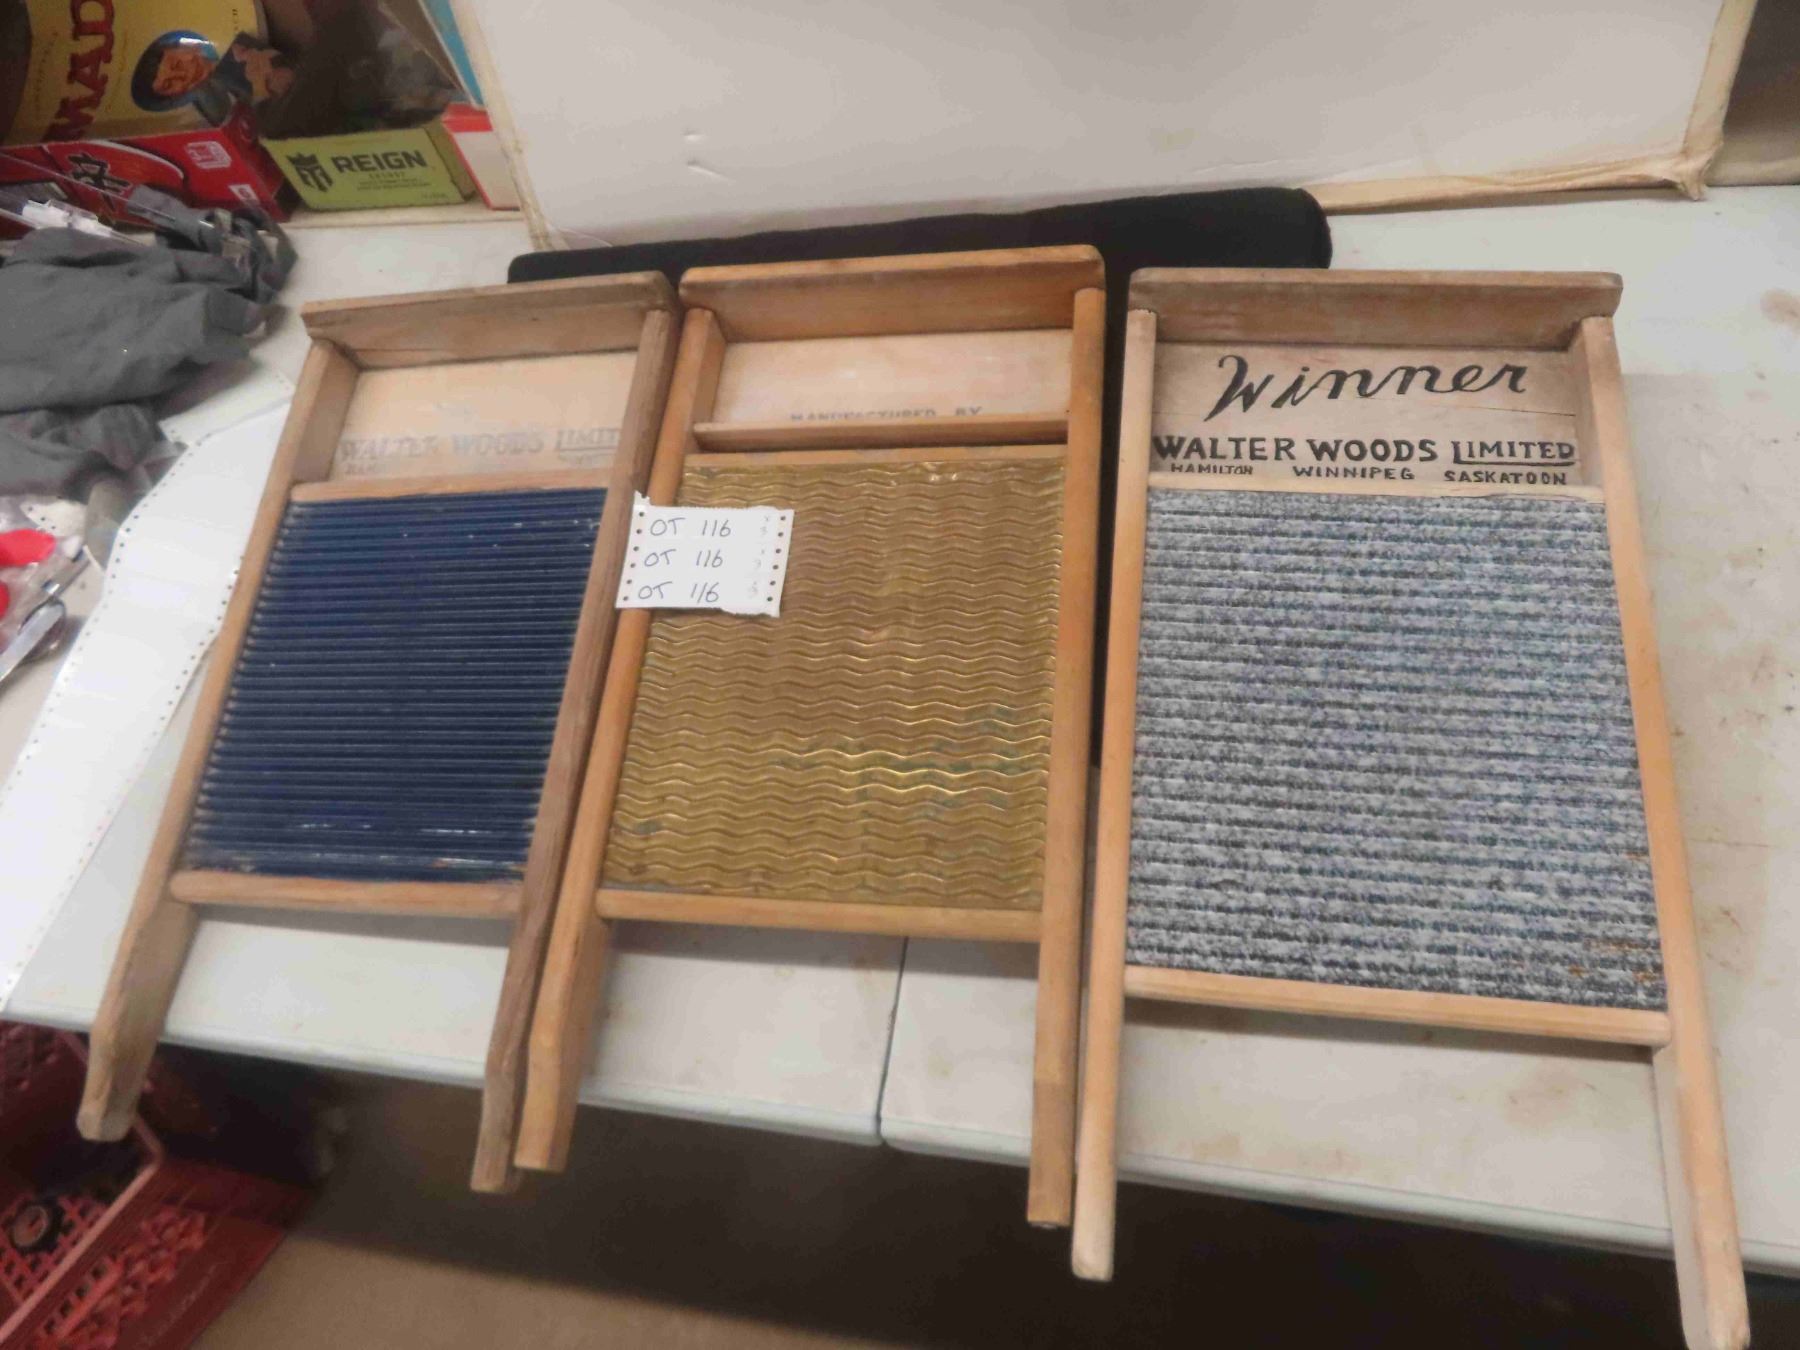 MAD
REIGN
Winner
WALTER WOODS LIMIT
HAM
MANUFACTURED BY
WALTER WOODS LIMITED
HAMILTON WINNIPEG SASKATOON
OT 116
OT 116
OT 116